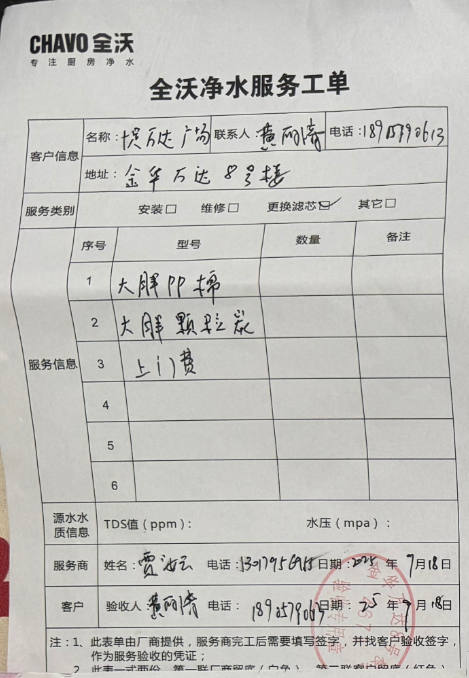 CHAVO 全沃
专注厨房净水
全沃净水服务工单
客户信息
名称： 万达广场 联系人：黄丽涛 电话：
地址：金华万达8号楼
服务类别 安装□ 维修□ 更换滤芯☑ 其它□
服务信息
序号 型号 数量 备注
1 大胖PP棉
2 大胖颗粒炭
3 上门费
4
5
6
源水水质信息 TDS值（ppm）： 水压（mpa）：
服务商 姓名： 电话： 日期：2025年7月18日
客户 验收人 黄丽涛 电话： 日期：25年7月18日
注：1、此表单由厂商提供，服务商完工后需要填写签字，并找客户验收签字，
作为服务验收的凭证；
2、此表一式两份，第一联厂商留底（白色），第二联客户留底（红色）